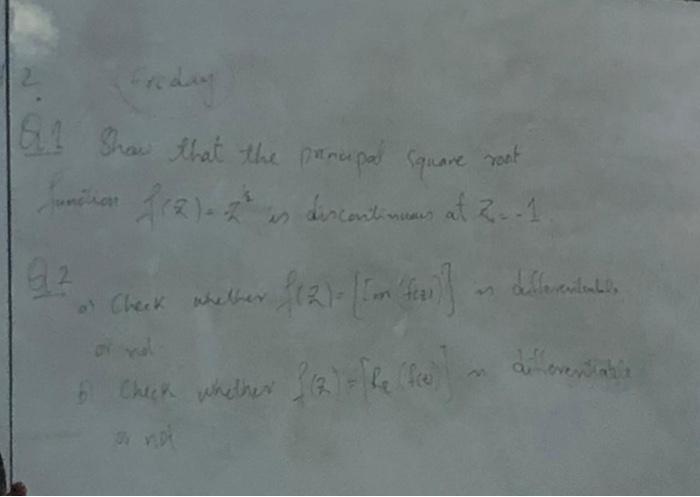 2
(Friday)
Q1 Show that the principal square root
function f(z) = z^½ is discontinuous at z = -1
Q2
a) Check whether f(z) = [Im (f(z))] is differentiable
or not
b) Check whether f(z) = [Re (f(z)] is differentiable
or not